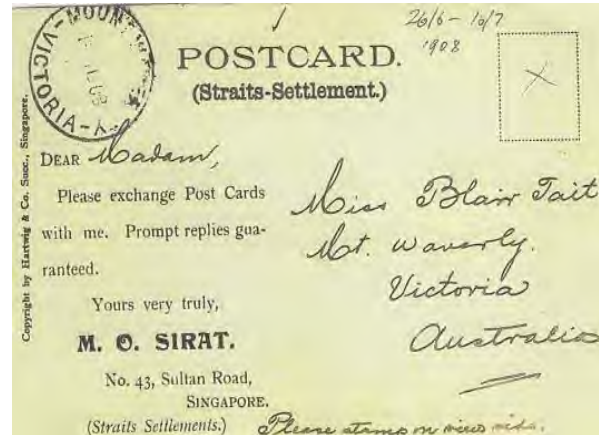 26/6 - 10/7
1908
MOUNT
VICTORIA
POSTCARD.
(Straits-Settlement.)
Copyright by Hartwig & Co. Succ., Singapore.
DEAR Madam,
Please exchange Post Cards
with me. Prompt replies gua-
ranteed.
Yours very truly,
M. O. SIRAT.
No. 43, Sultan Road,
SINGAPORE.
(Straits Settlements.)
Miss Blair Tait
Mt. Waverly.
Victoria
Australia
Please stamp on view side.